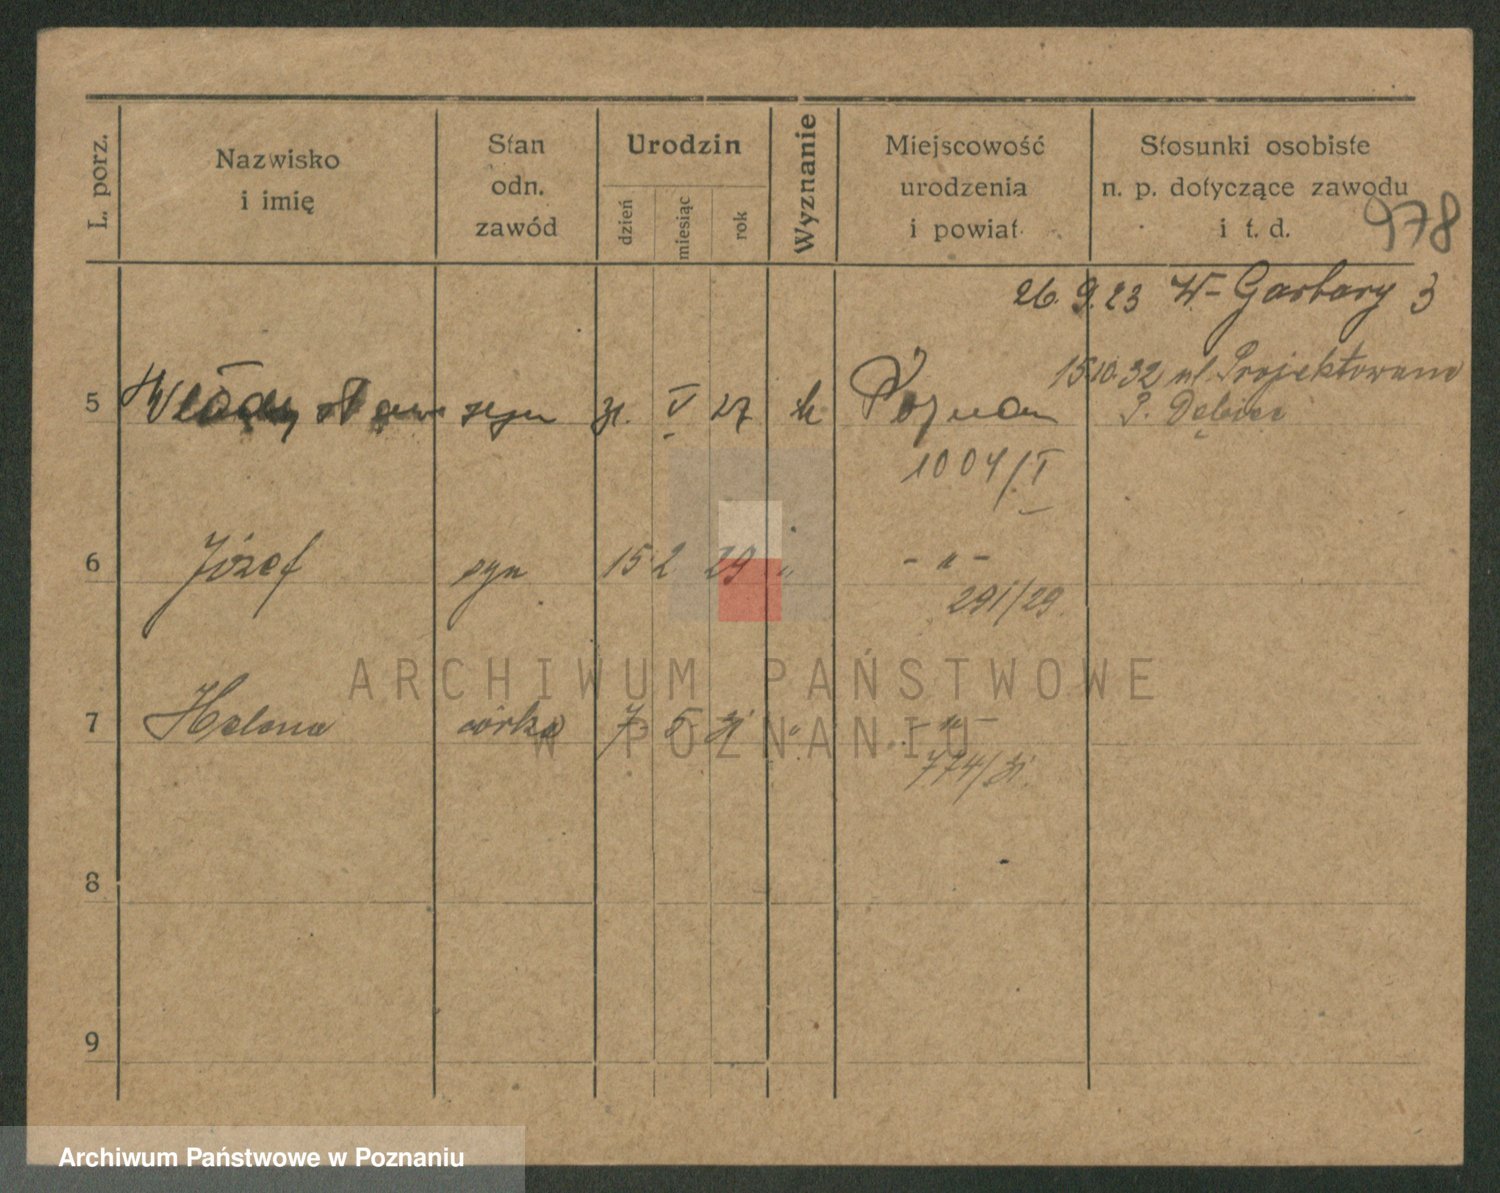 L. porz.
Nazwisko
i imię
Stan
odn.
zawód
Urodzin
dzień
miesiąc
rok
Wyznanie
Miejscowość
urodzenia
i powiat
Stosunki osobiste
n. p. dotyczące zawodu
i t. d.
978
26. 9. 23 W- Garbary 3
15.10.32 ul. Projektowana
5 syn 31. V 27 k Poznań
P. Dębiec
1004/I
6 Józef syn 15 2 29 " - " -
291/29.
7 Helena córka 7 5 31 " - " -
774/31.
8
9
ARCHIWUM PAŃSTWOWE
W POZNANIU
Archiwum Państwowe w Poznaniu